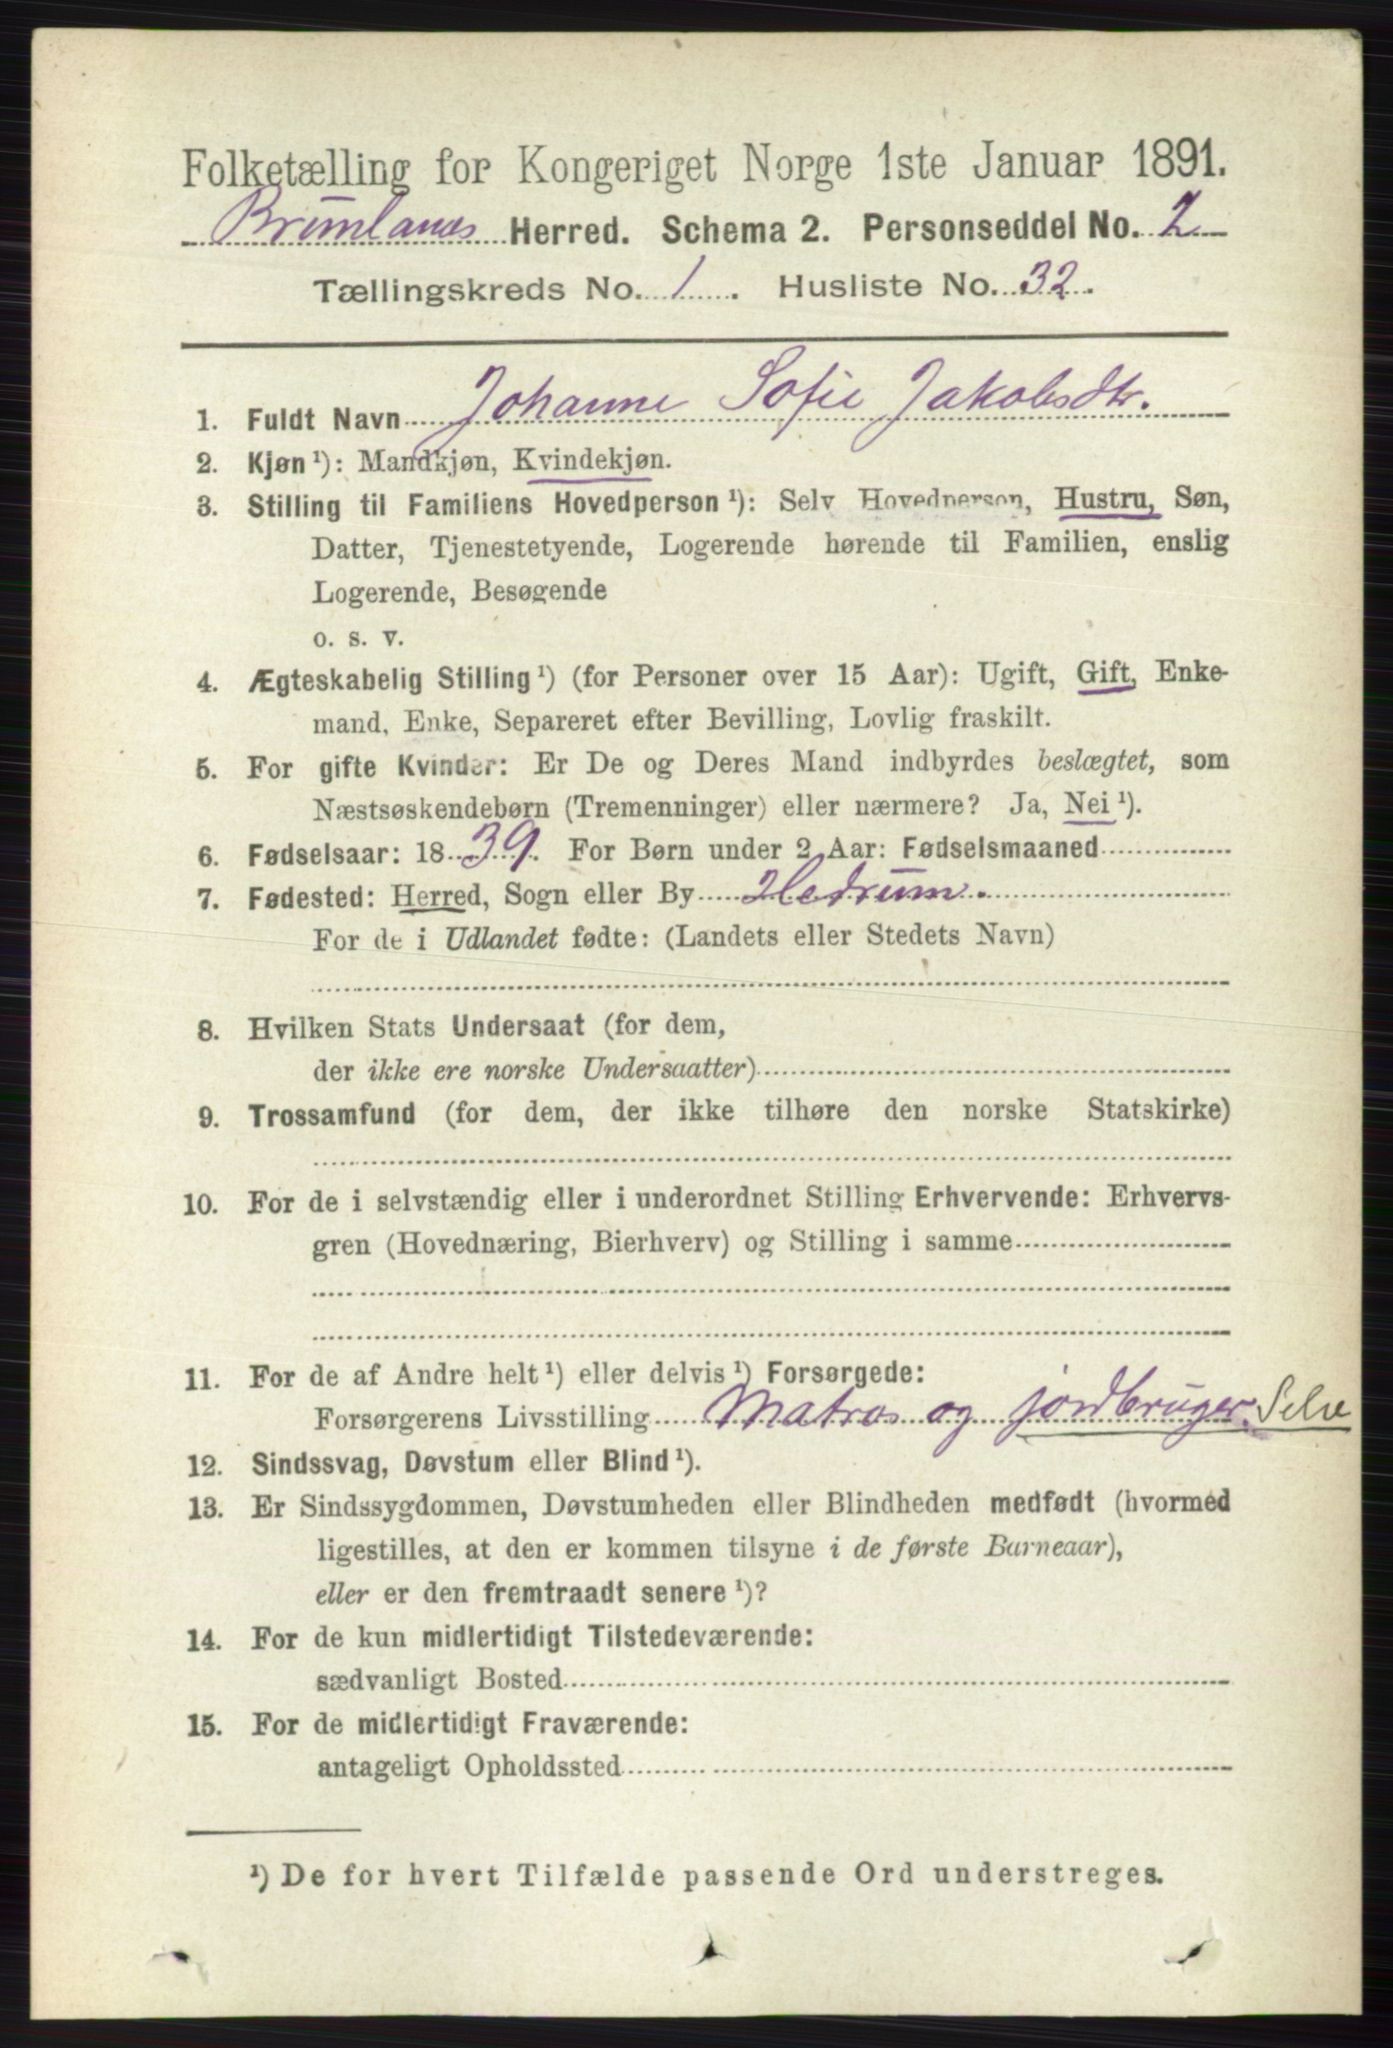 Folketælling for Kongeriget Norge 1ste Januar 1891.
Brunlanes Herred. Schema 2. Personseddel No. 2
Tællingskreds No. 1. Husliste No. 32.
1. Fuldt Navn Johanne Sofie Jakobsdtr.
2. Kjøn ¹): Mandkjøn, Kvindekjøn.
3. Stilling til Familiens Hovedperson ¹): Selv Hovedperson, Hustru, Søn,
Datter, Tjenestetyende, Logerende hørende til Familien, enslig
Logerende, Besøgende
o. s. v.
4. Ægteskabelig Stilling ¹) (for Personer over 15 Aar): Ugift, Gift, Enke-
mand, Enke, Separeret efter Bevilling, Lovlig fraskilt.
5. For gifte Kvinder: Er De og Deres Mand indbyrdes beslægtet, som
Næstsøskendebørn (Tremenninger) eller nærmere? Ja, Nei ¹).
6. Fødselsaar: 1839. For Børn under 2 Aar: Fødselsmaaned
7. Fødested: Herred, Sogn eller By Hedrum.
For de i Udlandet fødte: (Landets eller Stedets Navn)
8. Hvilken Stats Undersaat (for dem,
der ikke ere norske Undersaatter)
9. Trossamfund (for dem, der ikke tilhøre den norske Statskirke)
10. For de i selvstændig eller i underordnet Stilling Erhvervende: Erhvervs-
gren (Hovednæring, Bierhverv) og Stilling i samme
11. For de af Andre helt ¹) eller delvis ¹) Forsørgede:
Forsørgerens Livsstilling Matros og jordbruger. Selve
12. Sindssvag, Døvstum eller Blind ¹).
13. Er Sindssygdommen, Døvstumheden eller Blindheden medfødt (hvormed
ligestilles, at den er kommen tilsyne i de første Barneaar),
eller er den fremtraadt senere ¹)?
14. For de kun midlertidigt Tilstedeværende:
sædvanligt Bosted
15. For de midlertidigt Fraværende:
antageligt Opholdssted
¹) De for hvert Tilfælde passende Ord understreges.